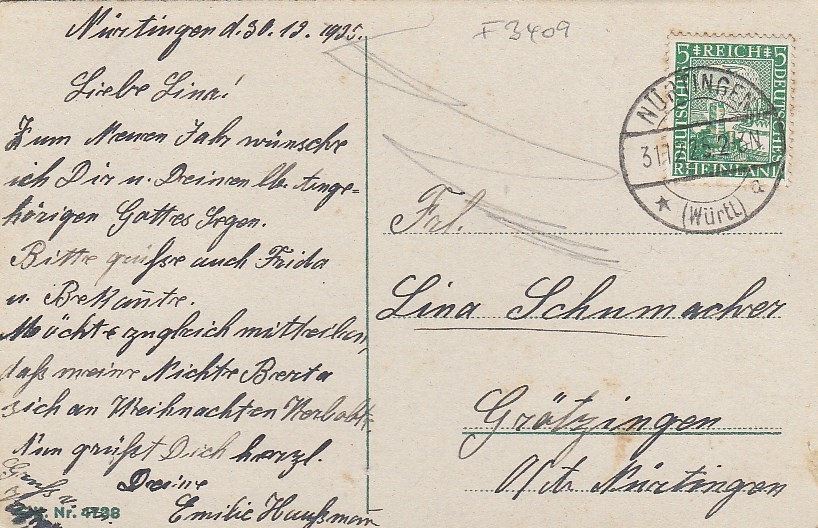 Nürtingen d. 30.12.1925.
Liebe Lina!
Zum Neuen Jahr wünsche
ich Dir u. Deinen lb. Ange-
hörigen Gottes Segen.
Bitte grüsse auch Frida
u. Bekañte.
Möchte zugleich mitteilen,
daß meine Nichte Berta
sich an Weihnachten Verlobte
Nun grüßt Dich herzl.
Deine
Emilie Haußmann
Gruß u.
Nr. 4798
F3409
5 REICH 5
DEUTSCHES
DEUTSCHES
RHEINLAND
NÜRTINGEN
(Württ)
a
Frl.
Lina Schumacher
Grötzingen
O/A. Nürtingen